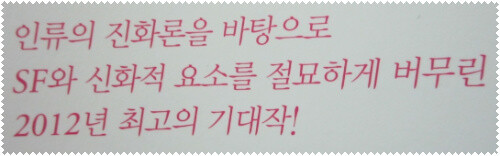 인류의 진화론을 바탕으로
SF와 신화적 요소를 절묘하게 버무린
2012년 최고의 기대작!